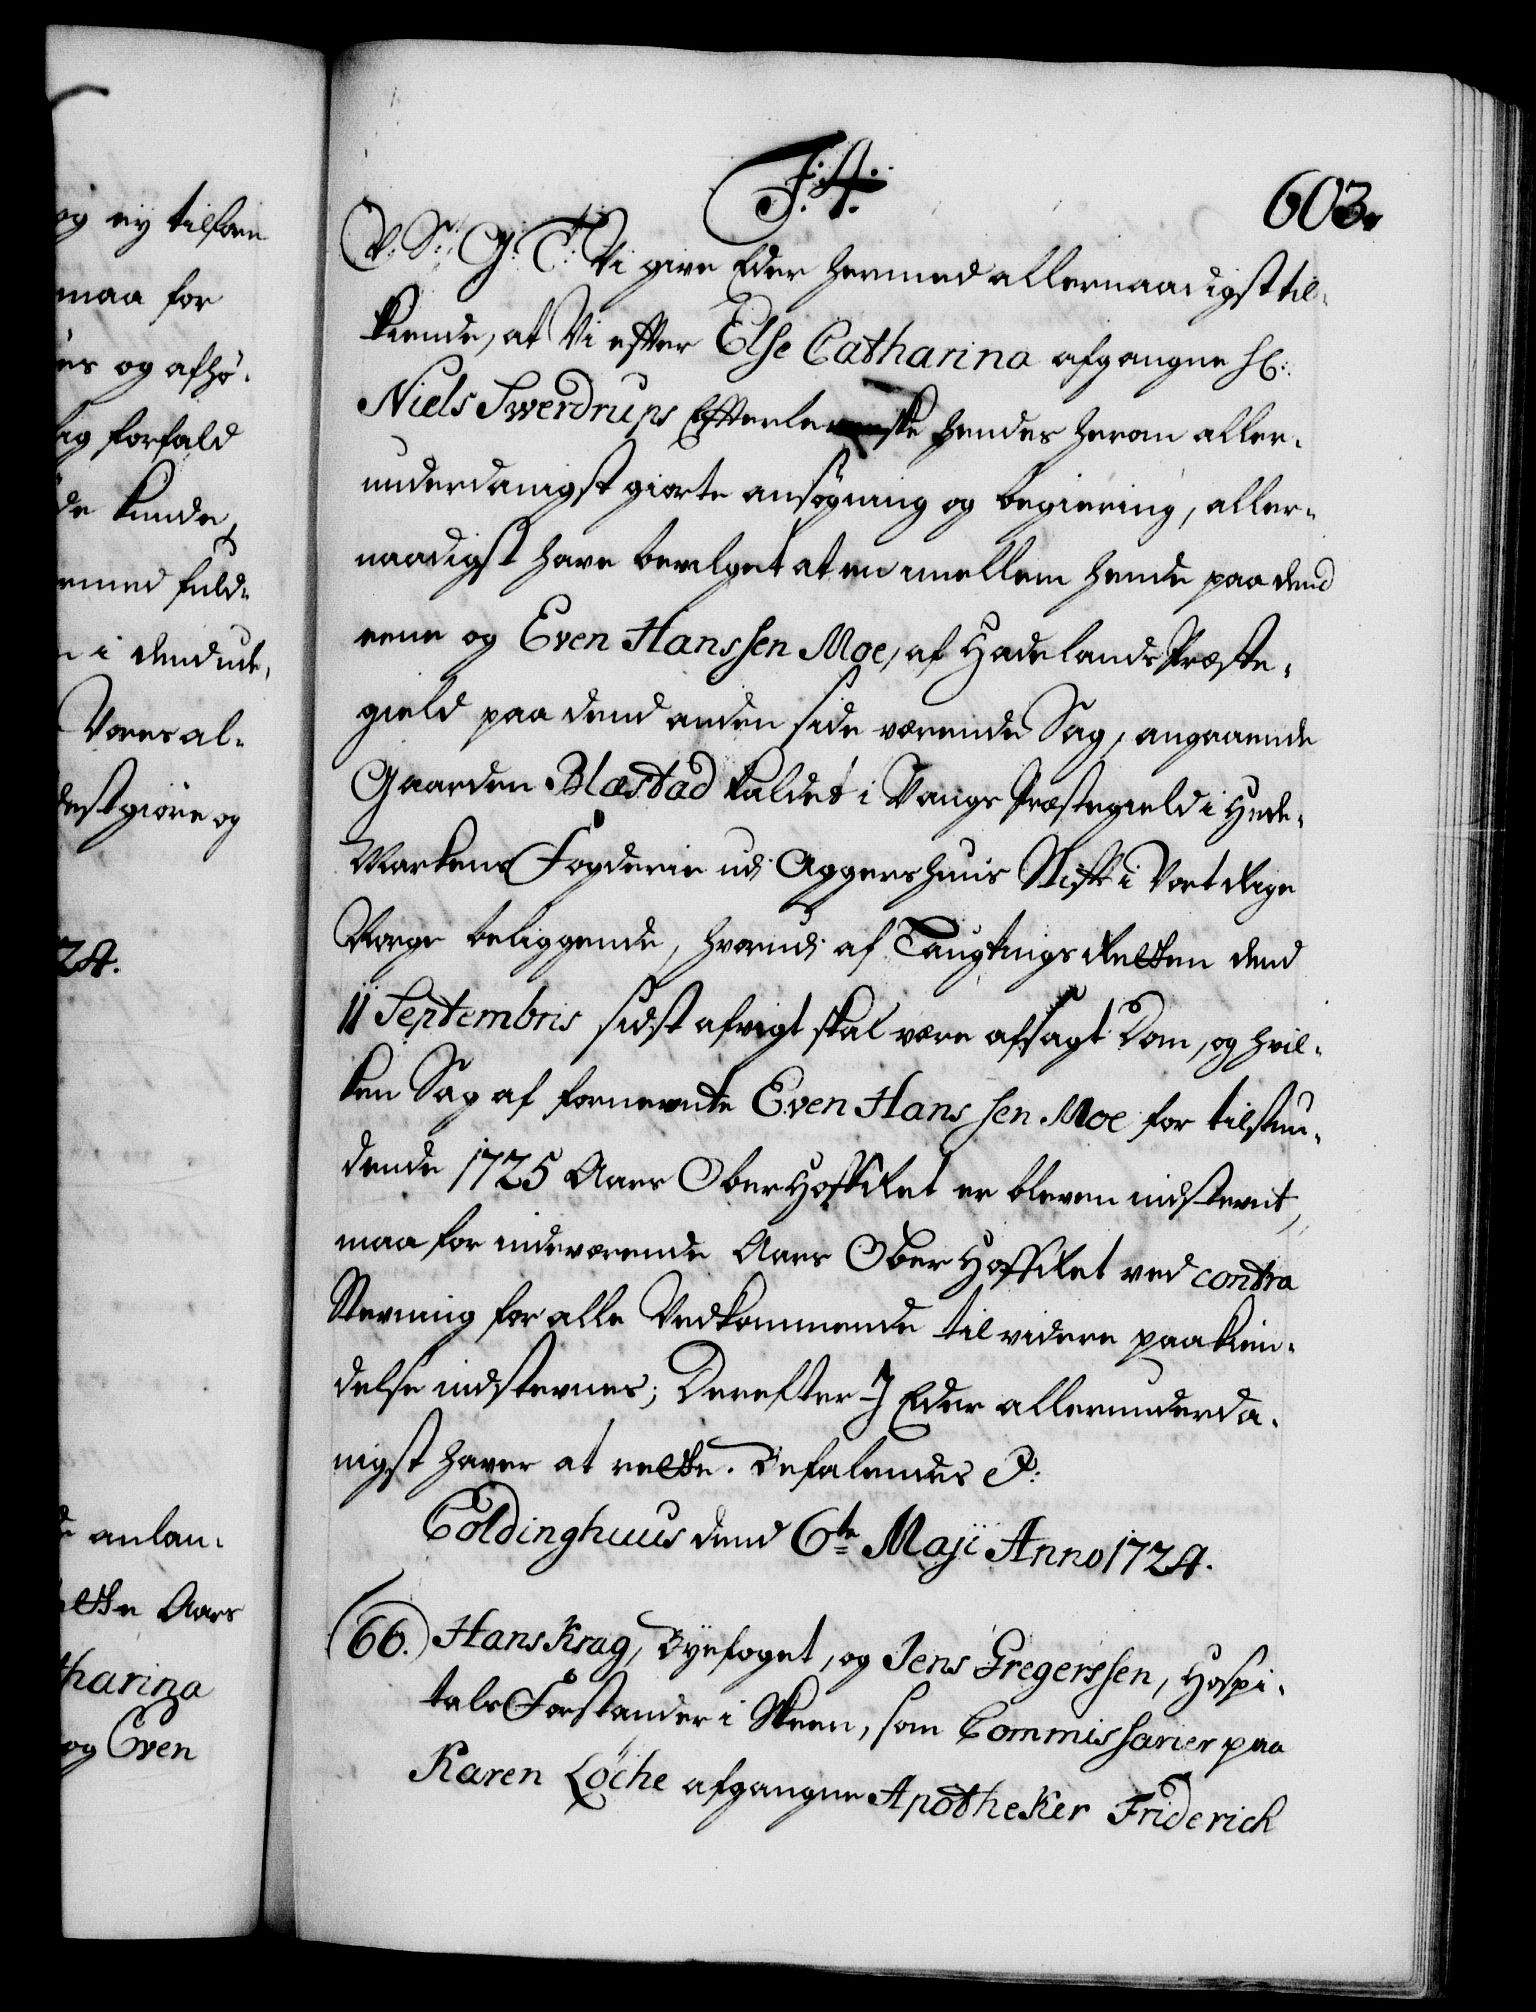 og ey tilforn
maa for
es og afhø-
lig forfald
de kunde,
emed fuld-
i dend ud-
Vores al-
dest giøre og
24.
anlan-
ette Aars
tharina
og Even
F: 4:
603.
V: S: G: T: Vi give Eder hermed allernaadigst til-
kiende, at Vi efter Else Catharina afgangne Sl:
Niels Swerdrups Efterleverske hendes herom aller-
underdanigst giorte ansøgning og begiering, aller-
naadigst have bevilget at en imellem hende paa dend
eene og Even Hanssen Moe, af Hadelands Præste-
gield paa dend anden side værende Sag, angaaende
Gaarden Blæstad kaldet i Vangs Præstegield i Hede-
Markens Fogderie udi Aggershuus Stift i Vort Rige
Norge beliggende, hvorudi af Laugtings Retten dend
11 Septembris sidst afvigt skal være afsagt Dom, og hvil-
ken Sag af fornevnte Even Hanssen Moe for tilstun-
dende 1725 Aars Ober Hoff Ret er bleven indstevnt,
maa for indeværende Aars Ober Hoff Ret ved contra
Stevning for alle Vedkommende til videre paakien-
delse indstevnes; Derefter I Eder allerunderda-
nigst haver at rette. Befalendes P:
Coldinghuus dend 6te Maji Anno 1724.
66. Hans Krag, Byefoget, og Jens Gregerssen, Hospi-
tals Forstander i Skeen, som Commissarier paa
Karen Löche afgangne Apotheker Friderich